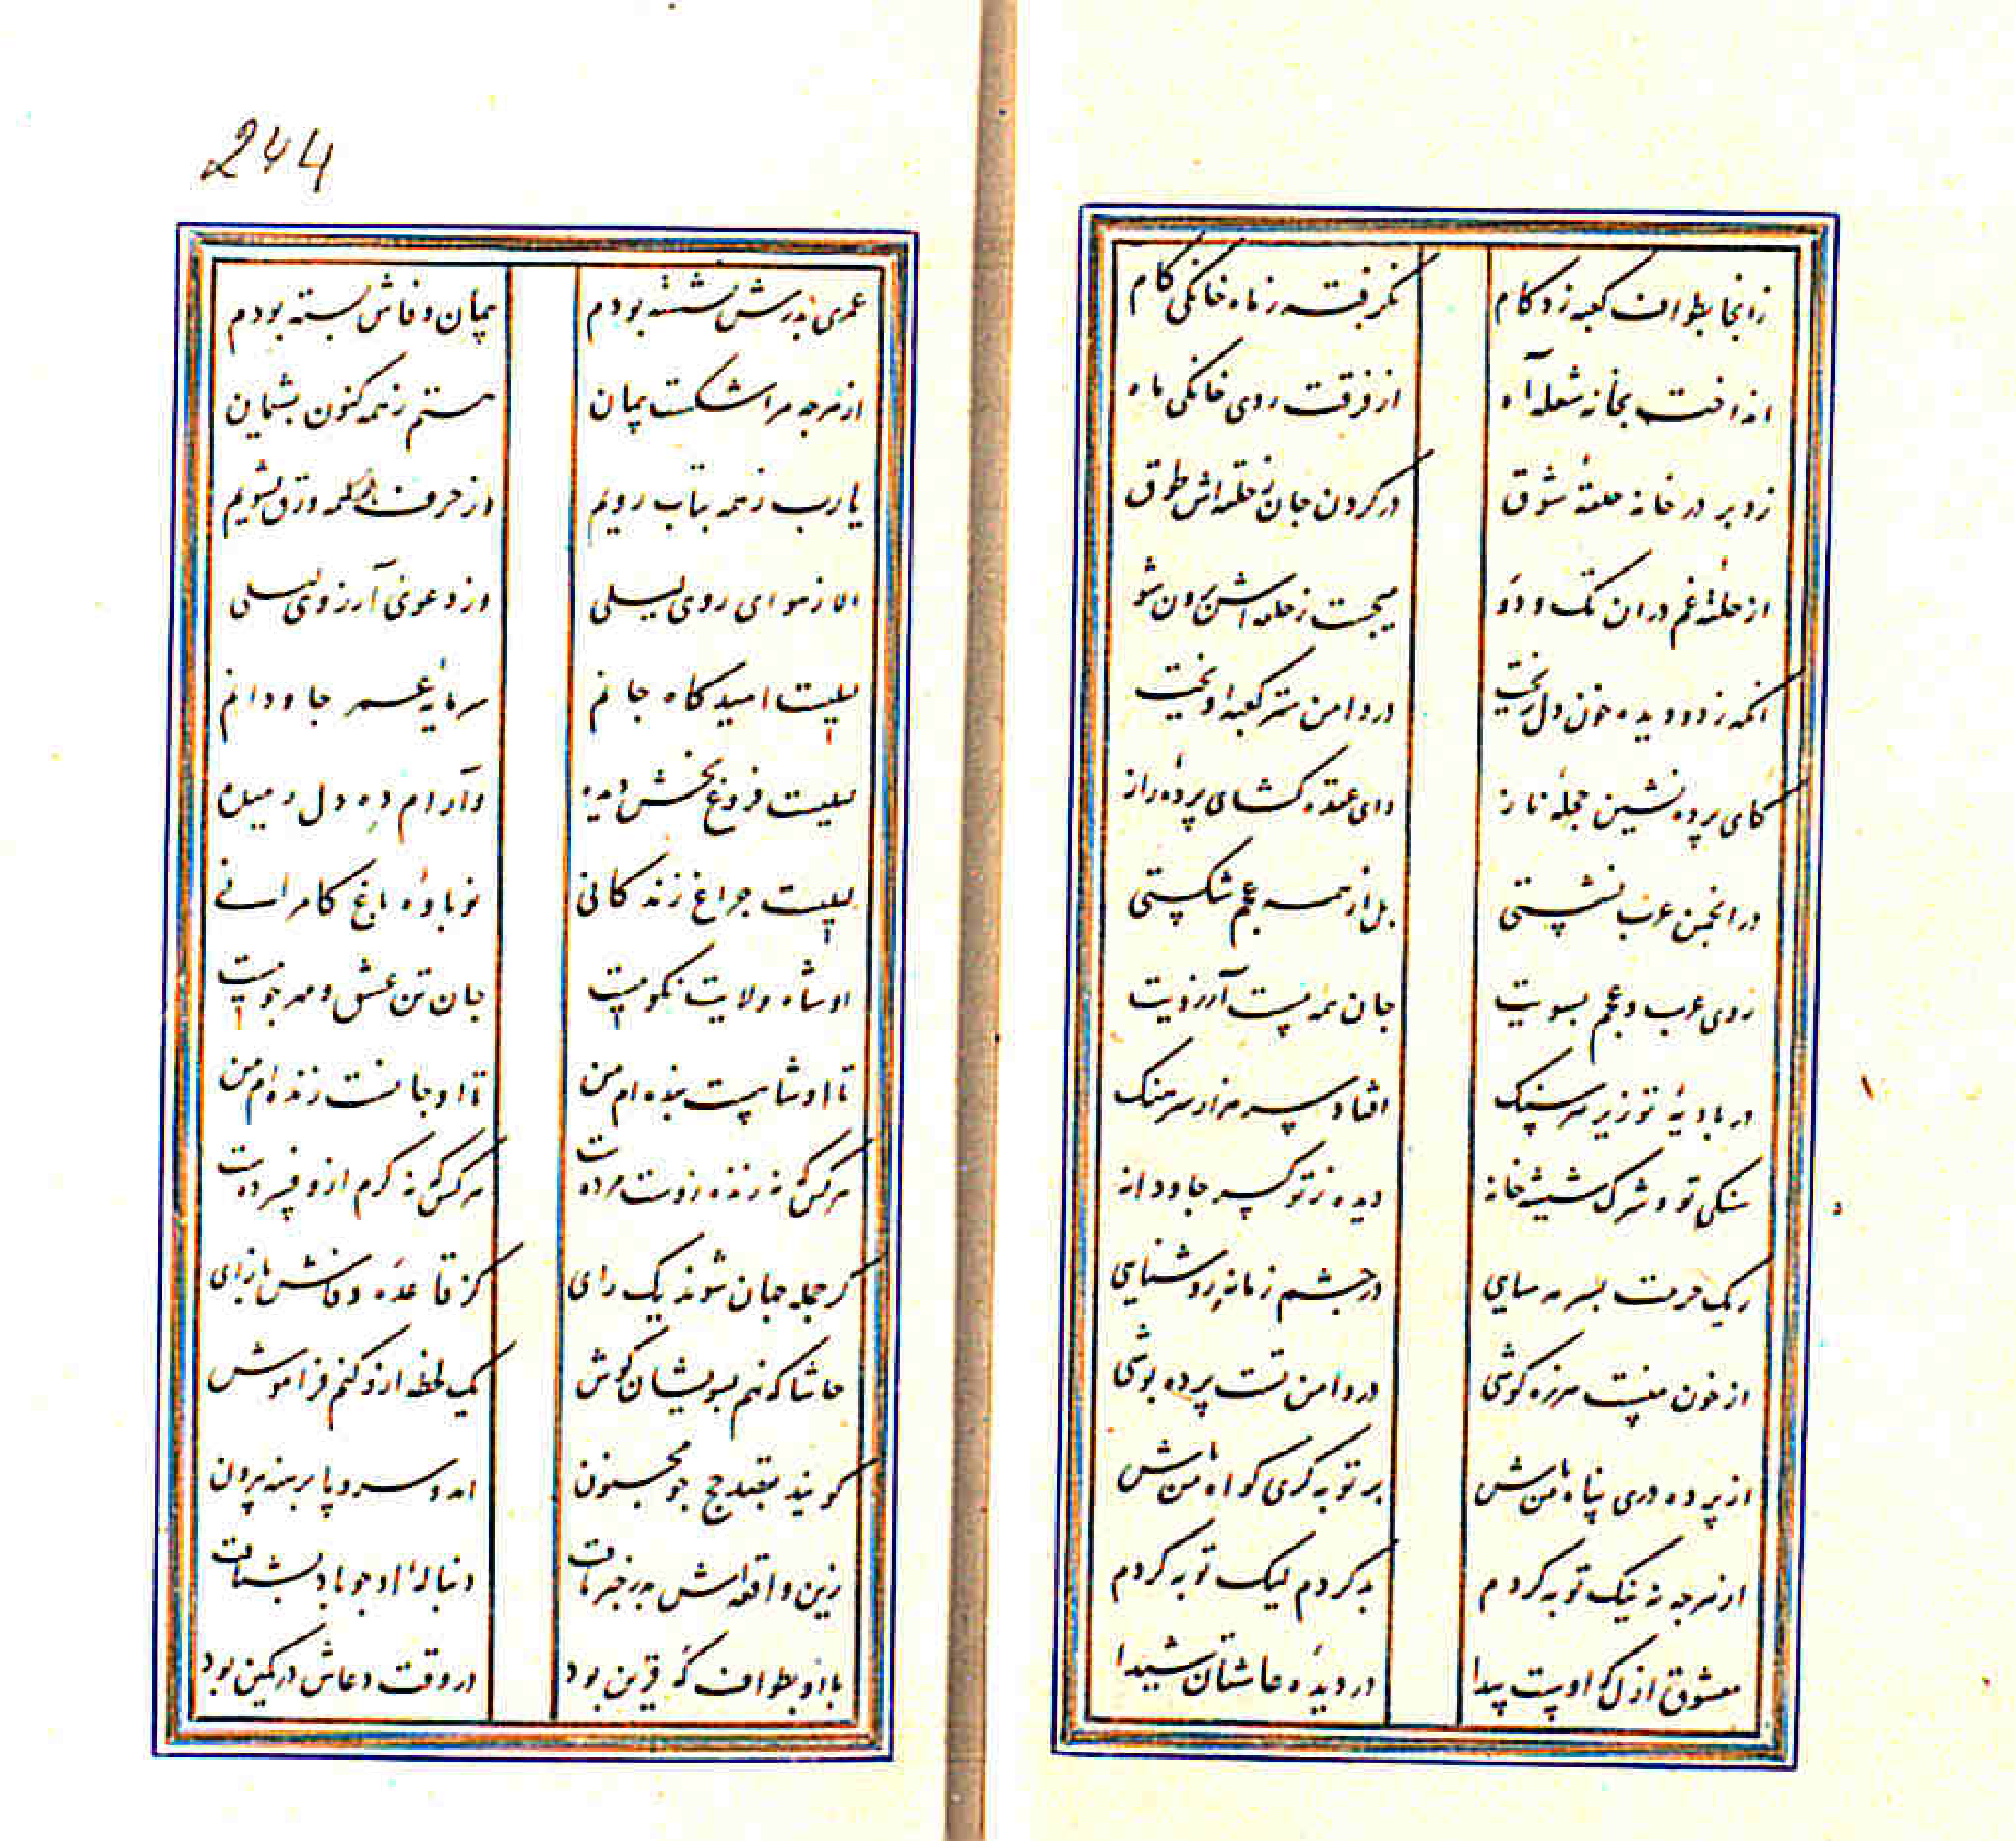 244
زانجا بطواف کعبه زد کام نگرفته ز ماه خانگی کام
انداخت بخانه شعله آه از فرقت روی خانگی ماه
زد بر در خانه حلقهٔ شوق در کردن جان ز حلقه اش طوق
از حلقهٔ غم در ان تک و دو میجست ز حلقه اش برون شو
انگه ز دو دیده خون دل ریخت در دامن ستر کعبه اویخت
کای پرده نشین حجلهٔ ناز وای عقده کشای پردهٔ راز
در انجمن عرب نشستی بل از همه عجم شکستی
روی عرب و عجم بسویت جان همه پست آرزویت
در بادیهٔ تو زیر هر سنک افتاده سر هزار سرهنک
سنکی تو و شرک شیشه خانه دیده ز تو کسر جاودانه
ریک حرمت بسرمه سایی در چشم زمانه روشنایی
از خون منیت هرزه کوشی در دامن تست پرده پوشی
از پرده دری پناه من باش بر توبه گری کواه من باش
از هرچه نه نیک توبه کردم بد کردم لیک توبه کردم
معشوق ازل که اوست پیدا در دیدهٔ عاشقان شیدا
عمری بدرش نشسته بودم پیمان وفاش بسته بودم
از هرچه مرا شکست پیمان هستم ز همه کنون پشیمان
یارب ز همه بتاب رویم از حرف همه ورق بشویم
الا ز هوای روی لیلی وز دعوی آرزوی لیلی
لیلیست امیدکاه جانم سرمایهٔ عمر جاودانم
لیلیست فروغ بخش دیده وآرام ده دل رمیده
لیلیست چراغ زندکانی نوباوهٔ باغ کامرانی
او شاه ولایت نکوییست جان تن عشق و مهرجوییست
تا او شاهیست بنده ام من تا او جانست زنده ام من
هرکس که نه زنده زوست مردست هرکس که نه کرم ازو فسردست
کر جمله جهان شوند یک رای کز قاعدهٔ وفاش باز آی
حاشا که نهم بسویشان کوش یک لحظه ازو کنم فراموش
کویند بقصد حج چو مجنون امد سر و پا برهنه بیرون
زین واقعه اش پدر خبر یافت دنبالهٔ او چو باد بشتافت
با او بطواف که قرین بود در وقت دعاش در کمین بود